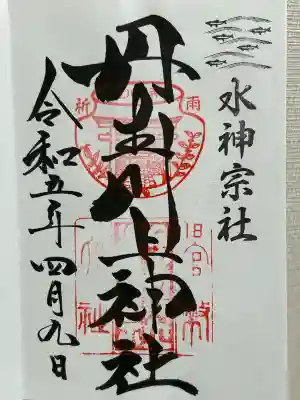 水神宗社
丹生川上神社
令和五年四月九日
祈雨